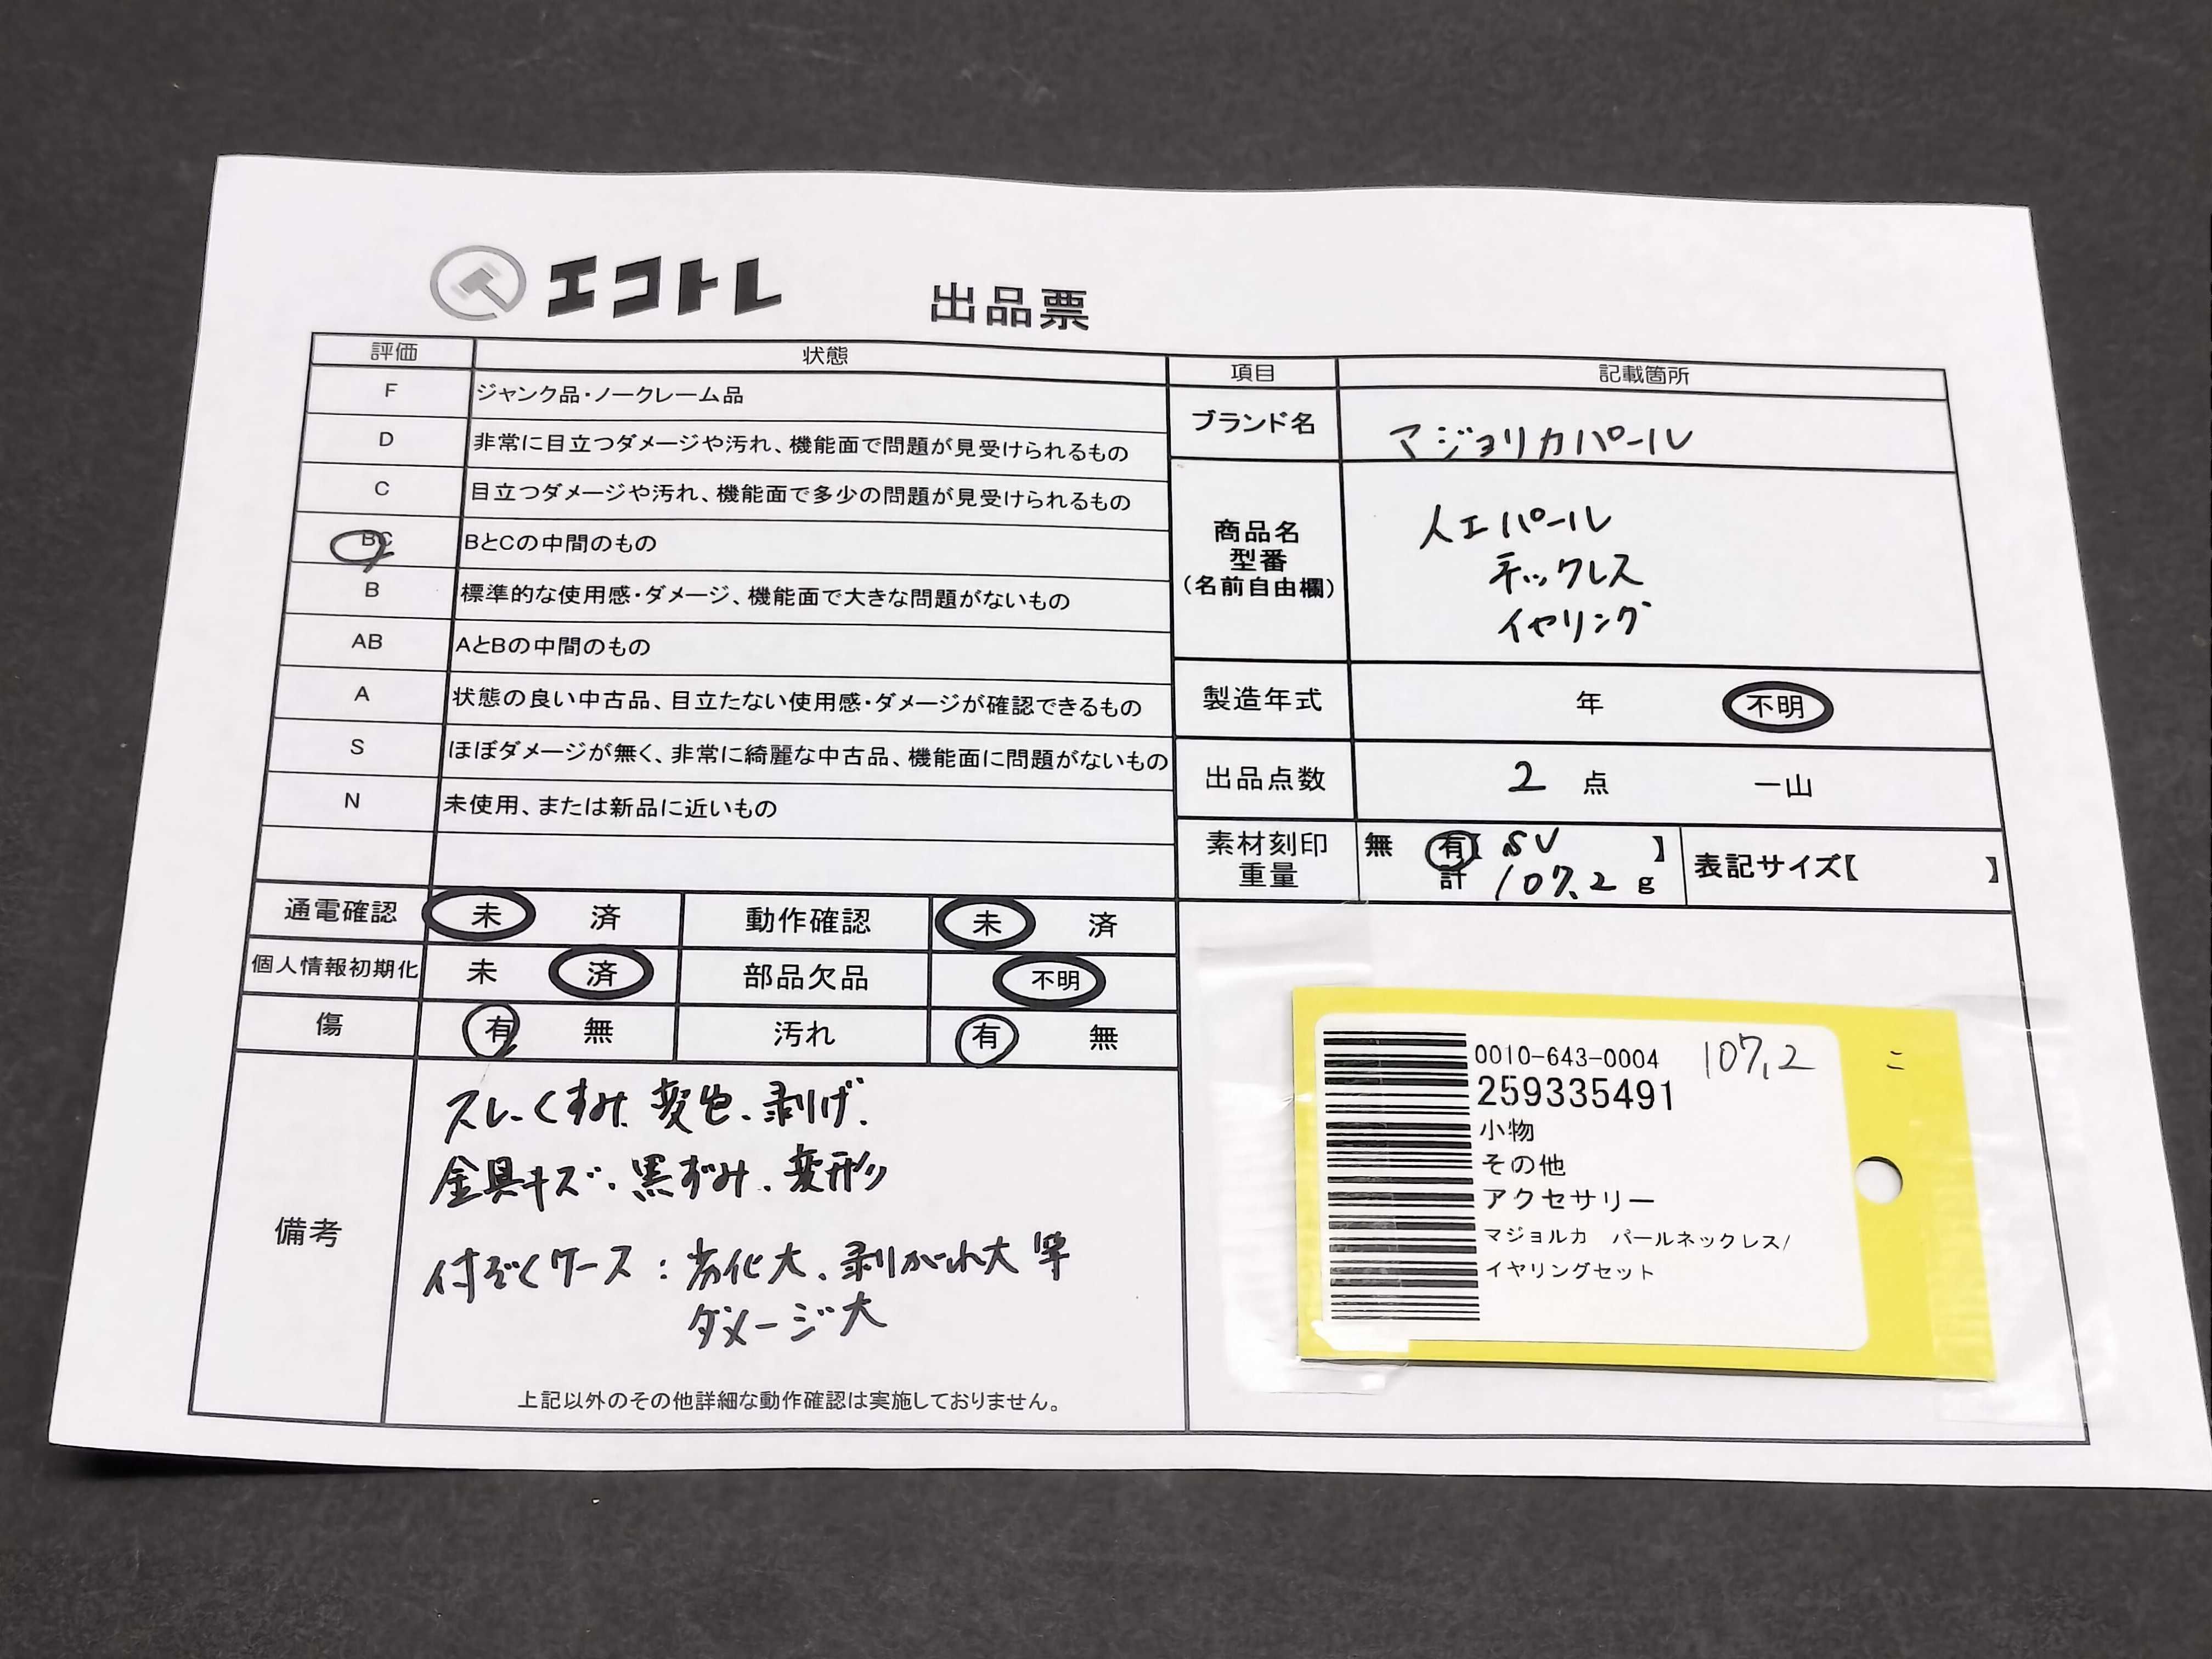 エコトレ 出品票
評価 状態
F ジャンク品・ノークレーム品
D 非常に目立つダメージや汚れ、機能面で問題が見受けられるもの
C 目立つダメージや汚れ、機能面で多少の問題が見受けられるもの
BC BとCの中間のもの
B 標準的な使用感・ダメージ、機能面で大きな問題がないもの
AB AとBの中間のもの
A 状態の良い中古品、目立たない使用感・ダメージが確認できるもの
S ほぼダメージが無く、非常に綺麗な中古品、機能面に問題がないもの
N 未使用、または新品に近いもの
通電確認 未 済 動作確認 未 済
個人情報初期化 未 済 部品欠品 不明
傷 有 無 汚れ 有 無
備考
スレ、くすみ、変色、剥げ、
金具キズ、黒ずみ、変形
付ぞくケース：劣化大、剥がれ大 等
ダメージ大
上記以外のその他詳細な動作確認は実施しておりません。
項目 記載箇所
ブランド名 マジョリカパール
商品名
型番
(名前自由欄)
人工パール
ネックレス
イヤリング
製造年式 年 不明
出品点数 2 点 一山
素材刻印
重量
無 有【 SV 】
計 107.2 g
表記サイズ【 】
0010-643-0004 107.2 ニ
259335491
小物
その他
アクセサリー
マジョルカ パールネックレス/
イヤリングセット